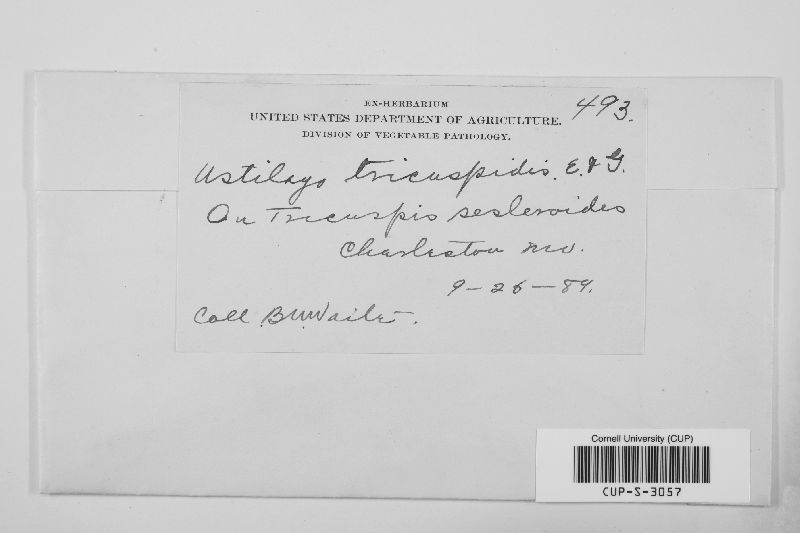 EX-HERBARIUM
UNITED STATES DEPARTMENT OF AGRICULTURE. 493.
DIVISION OF VEGETABLE PATHOLOGY.
Ustilago tricuspidis. E. & G.
On Tricuspis sesleroides
Charleston Mo.
9-26-89.
Coll. B.M.
Cornell University (CUP)
CUP-S-3057